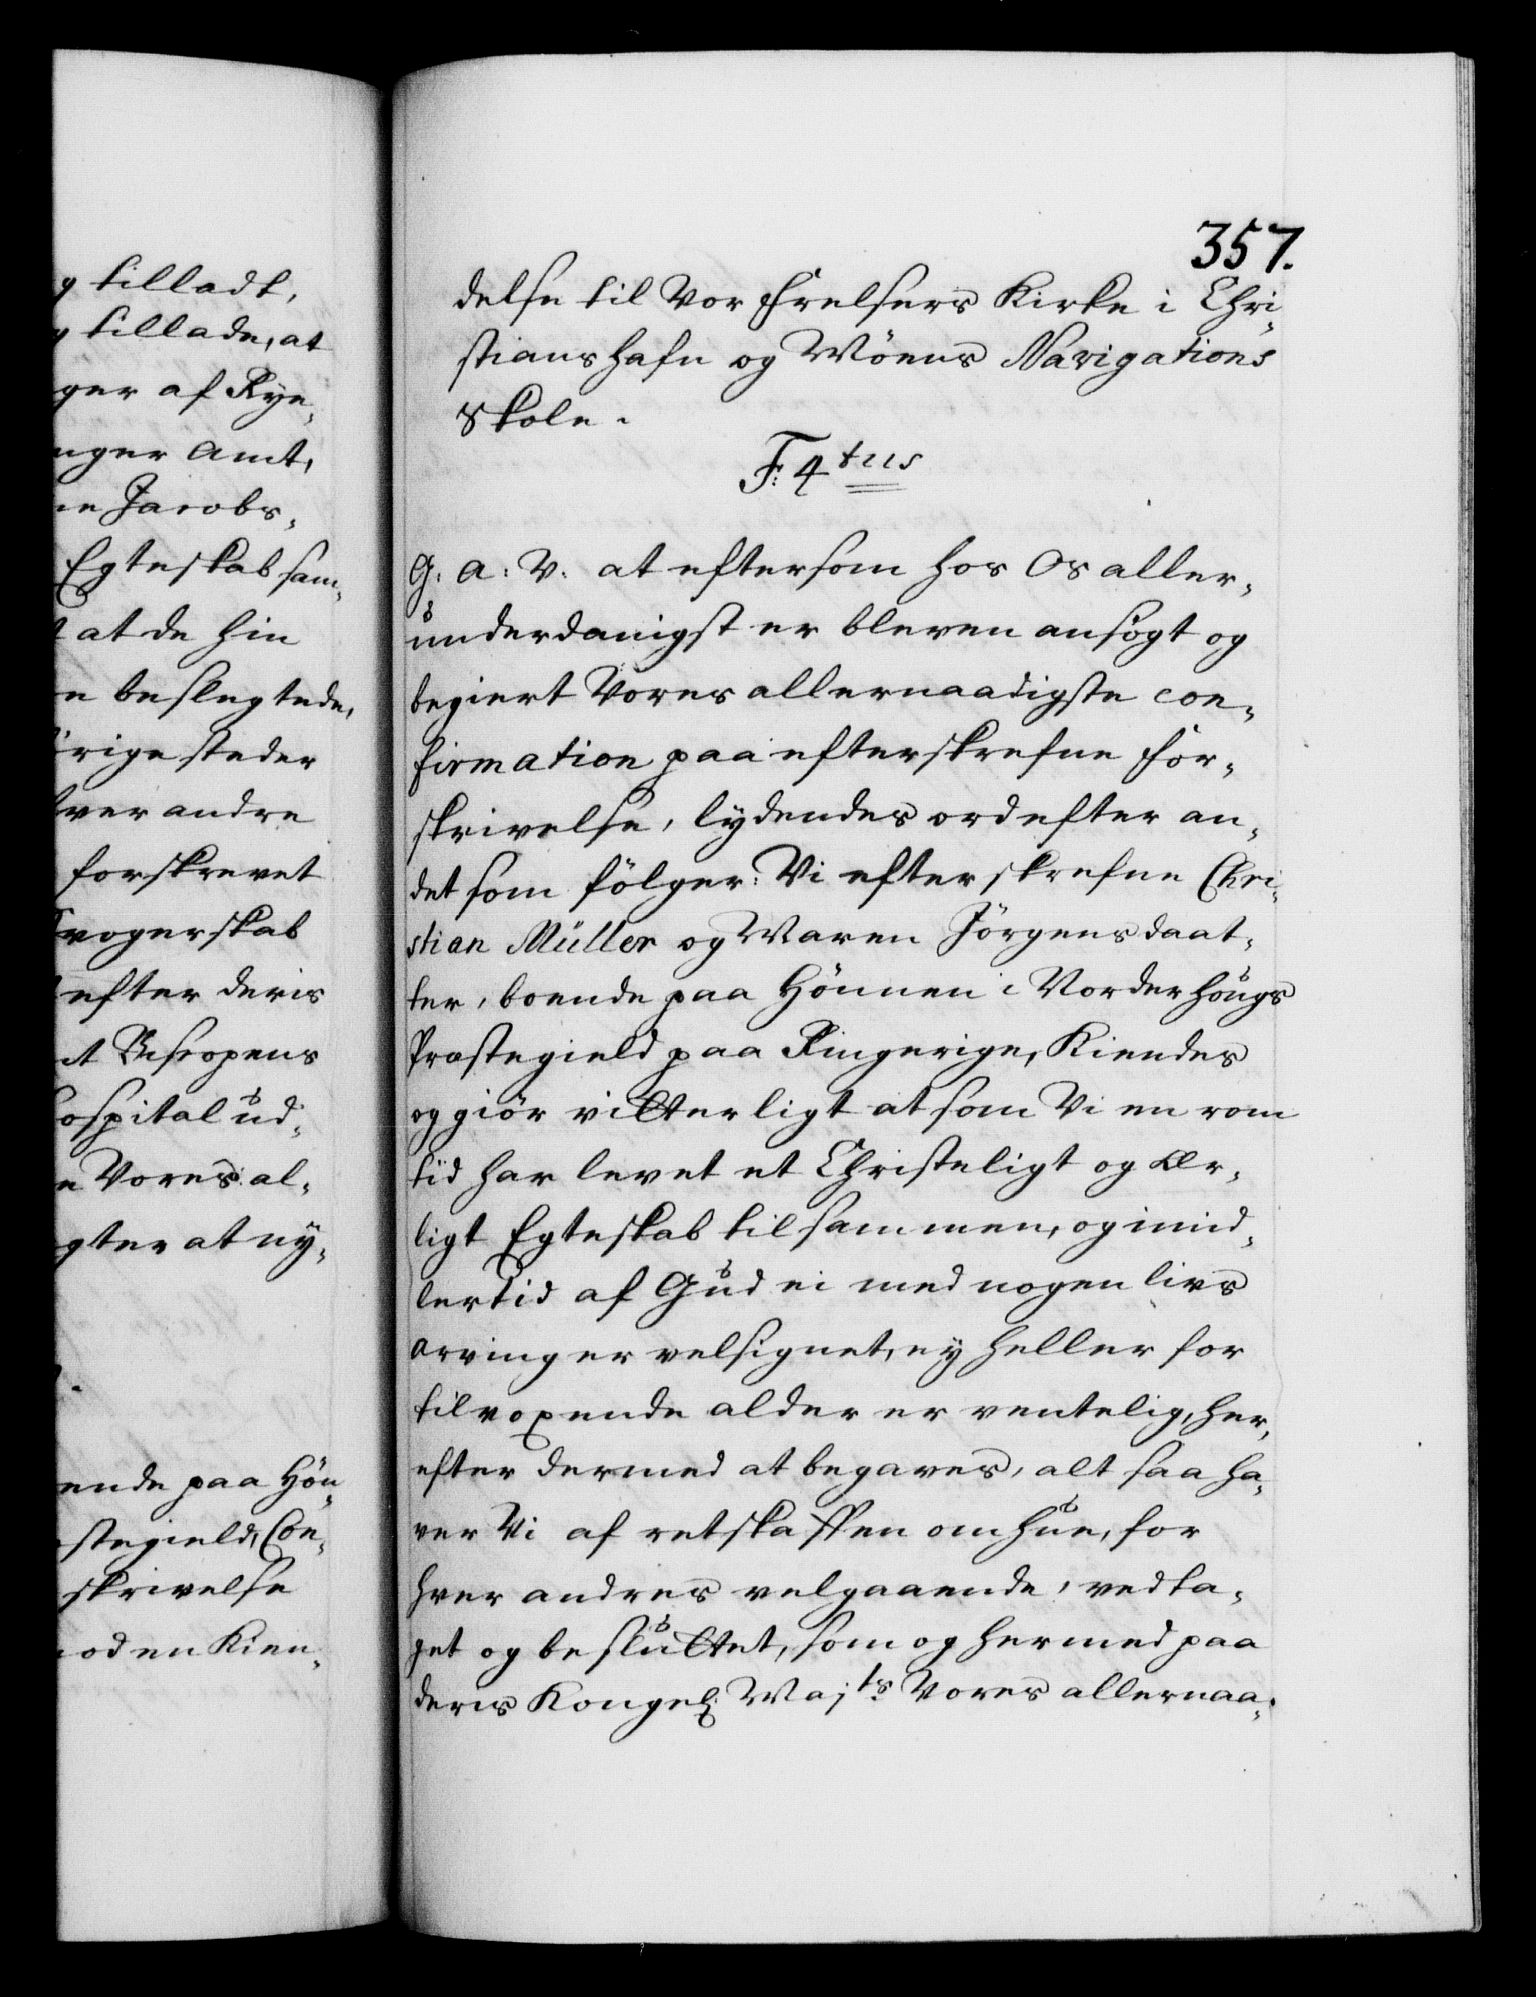 g tilladt,
g tillade, at
ger af Rye,
nger Amt,
ne Jacobs,
Egteskab sam,
t at de hin
n beslegtede,
örige steder
hver andre
forskrevet
Svogerskab
efter deris
at Biscopens
Hospital ud,
e Vores al,
gter at ny,
ende paa Hön,
stegield, Con,
skrivelse
mod en Kien,
357.
delse til Vor Frelsers Kirke i Chri,
stianshafn og Möens Navigations
Skole.
F: 4tus
G: A: V. at eftersom hos Os aller,
underdanigst er bleven ansögt og
begiert Vores allernaadigste con,
firmation paa efterskrefne For,
skrivelse, lydendes ord efter an,
det som fölger: Vi efterskrefne Chri,
stian Müller og Maren Jörgensdaat,
ter, boende paa Hönnen i Norderhougs
Præstegield paa Ringerige, Kiendes
og giör vitterligt at som Vi en rom
tid har levet et Christeligt og Ær,
ligt Egteskab tilsammen, og imid,
lertid af Gud ei med nogen livs
arvinger velsignet, ey heller for
tilvoxende alder er ventelig, her,
efter dermed at begaves, alt saa ha,
ver Vi af retskaffen omhue, for
hver andres velgaaende, vedta,
get og besluttet, som og hermed paa
deres Kongel: Majts Vores allernaa,